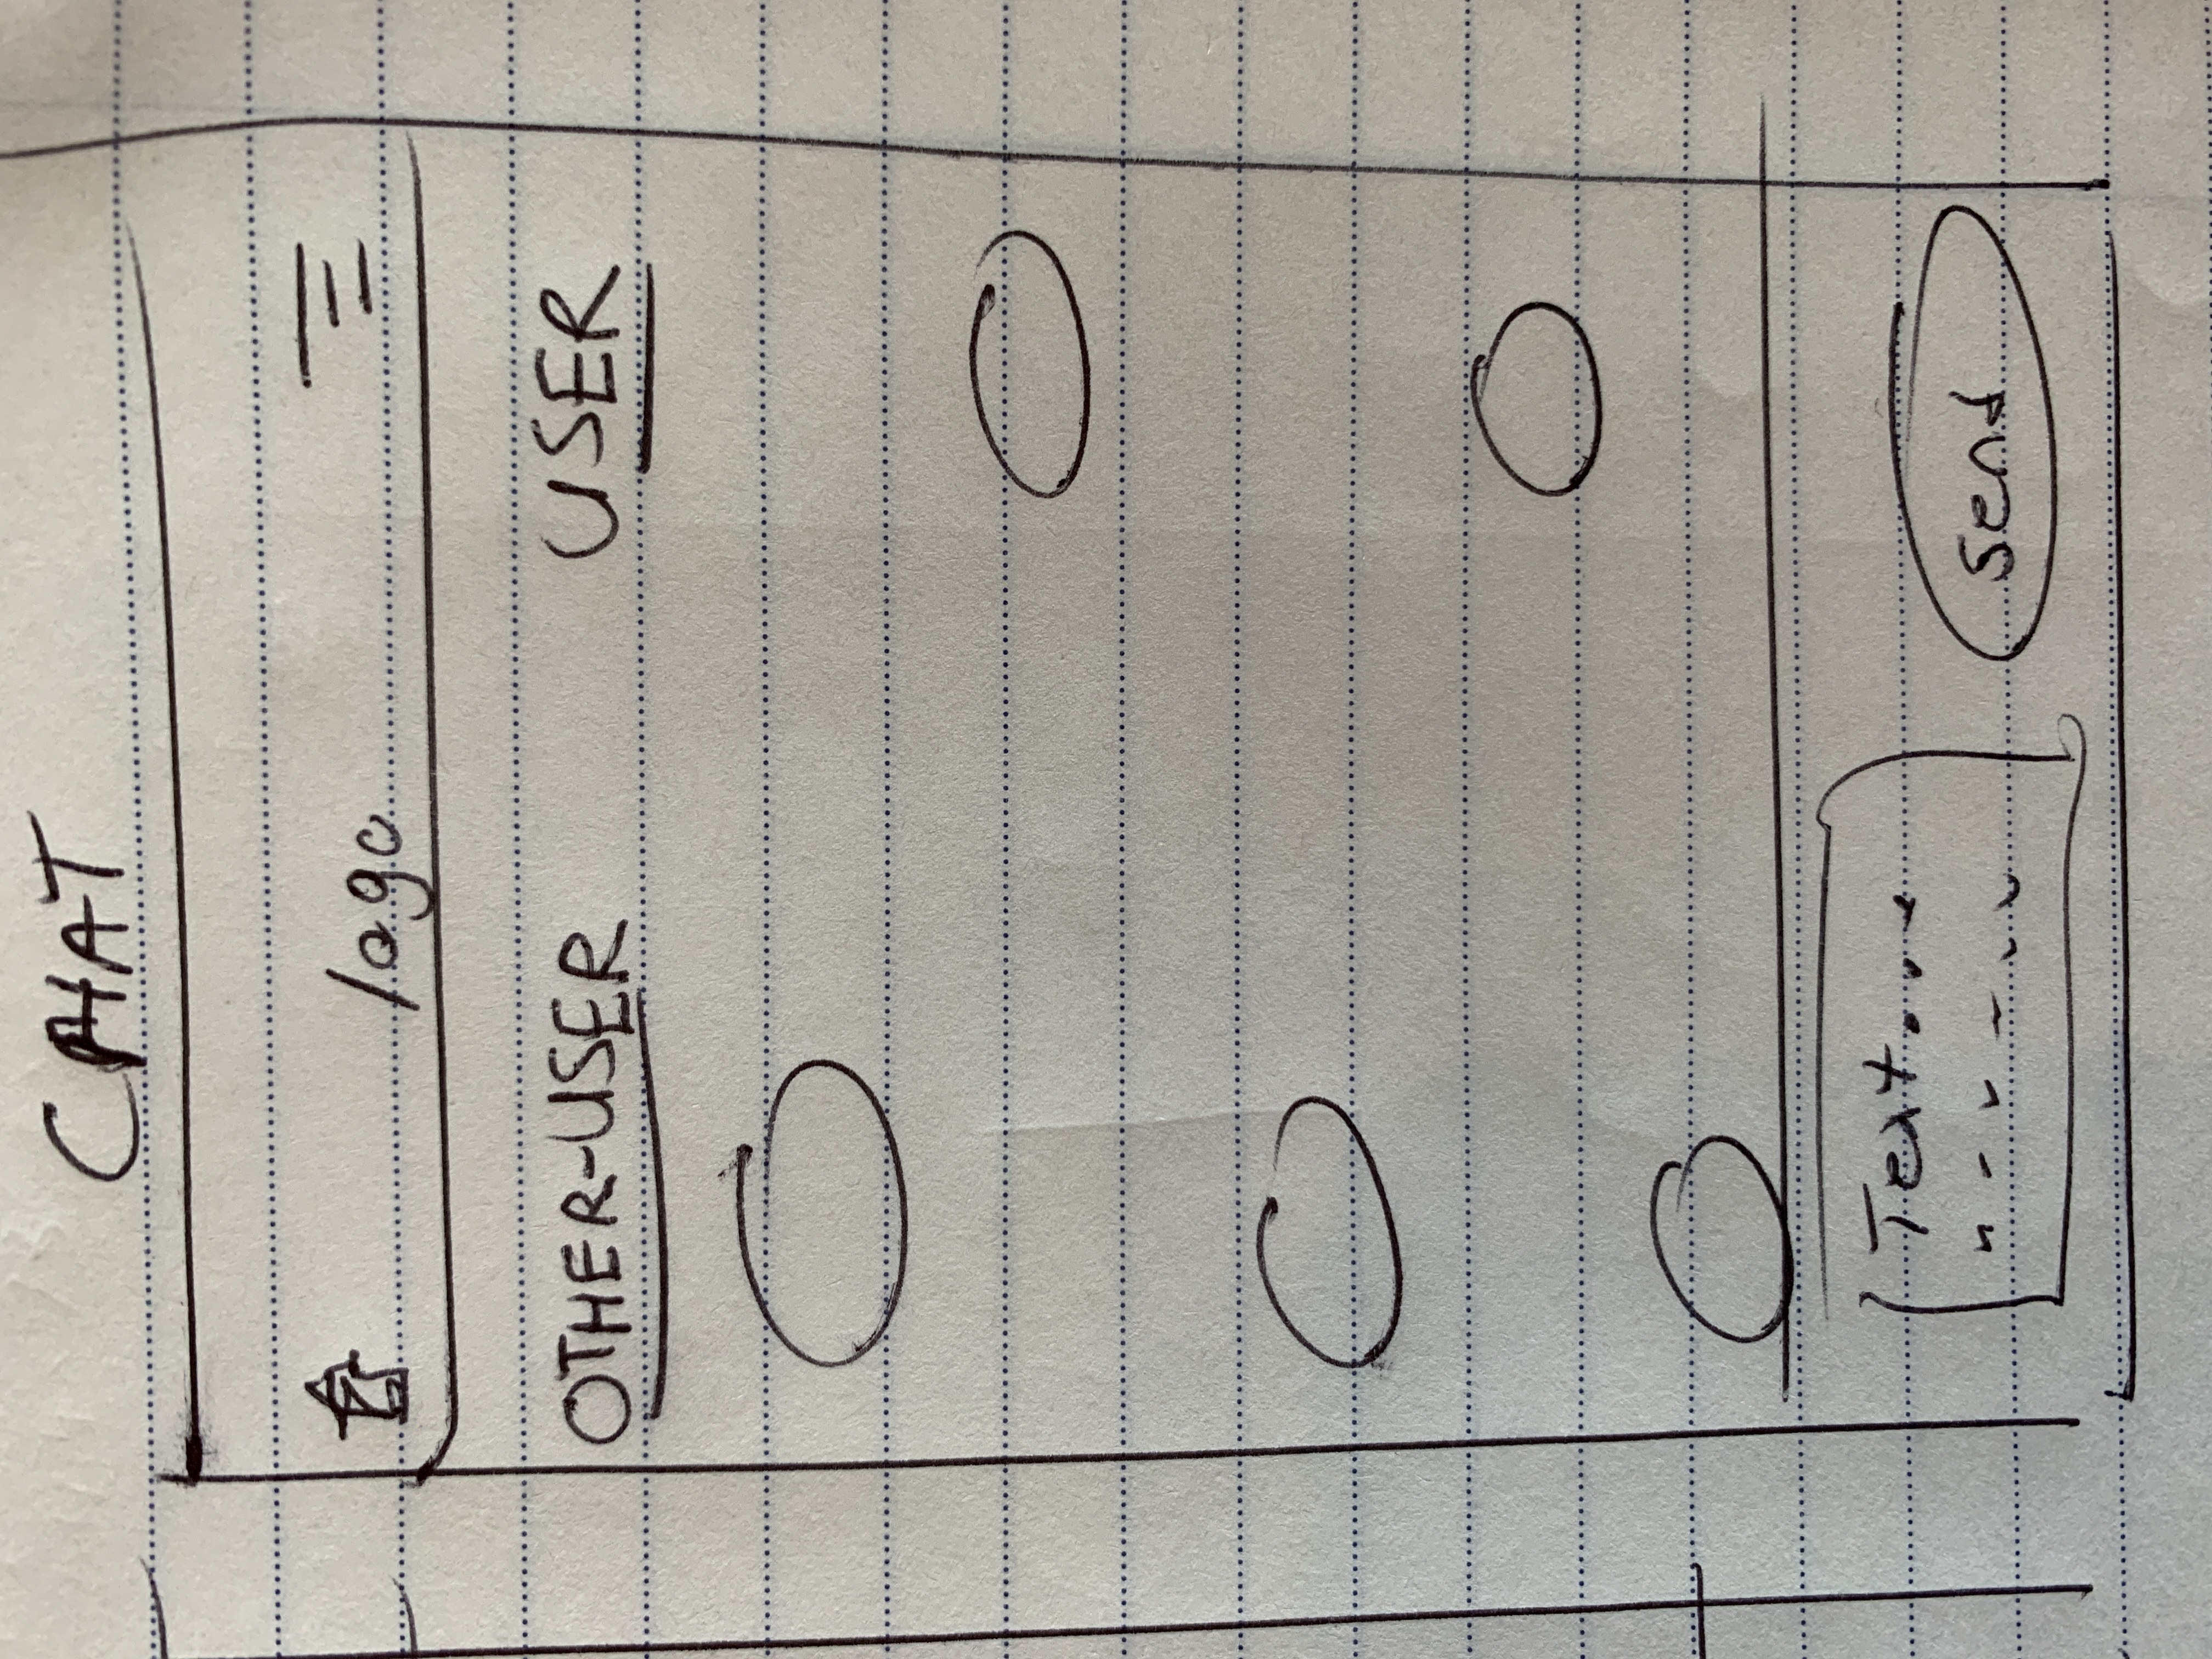 CHAT
logo
OTHER-USER USER
Text....
send